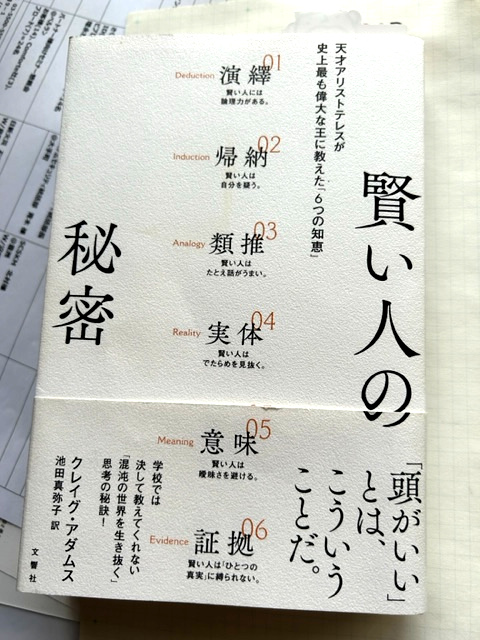 賢い人の
秘密
天才アリストテレスが
史上最も偉大な王に教えた「6つの知恵」
01
Deduction 演繹
賢い人には
論理力がある。
02
Induction 帰納
賢い人は
自分を疑う。
03
Analogy 類推
賢い人は
たとえ話がうまい。
04
Reality 実体
賢い人は
でたらめを見抜く。
05
Meaning 意味
賢い人は
曖昧さを避ける。
06
Evidence 証拠
賢い人は「ひとつの
真実」に縛られない。
「頭がいい」
とは、
こういう
ことだ。
学校では
決して教えてくれない
「混沌の世界を生き抜く」
思考の秘訣！
クレイグ・アダムス
池田真弥子 訳
文響社